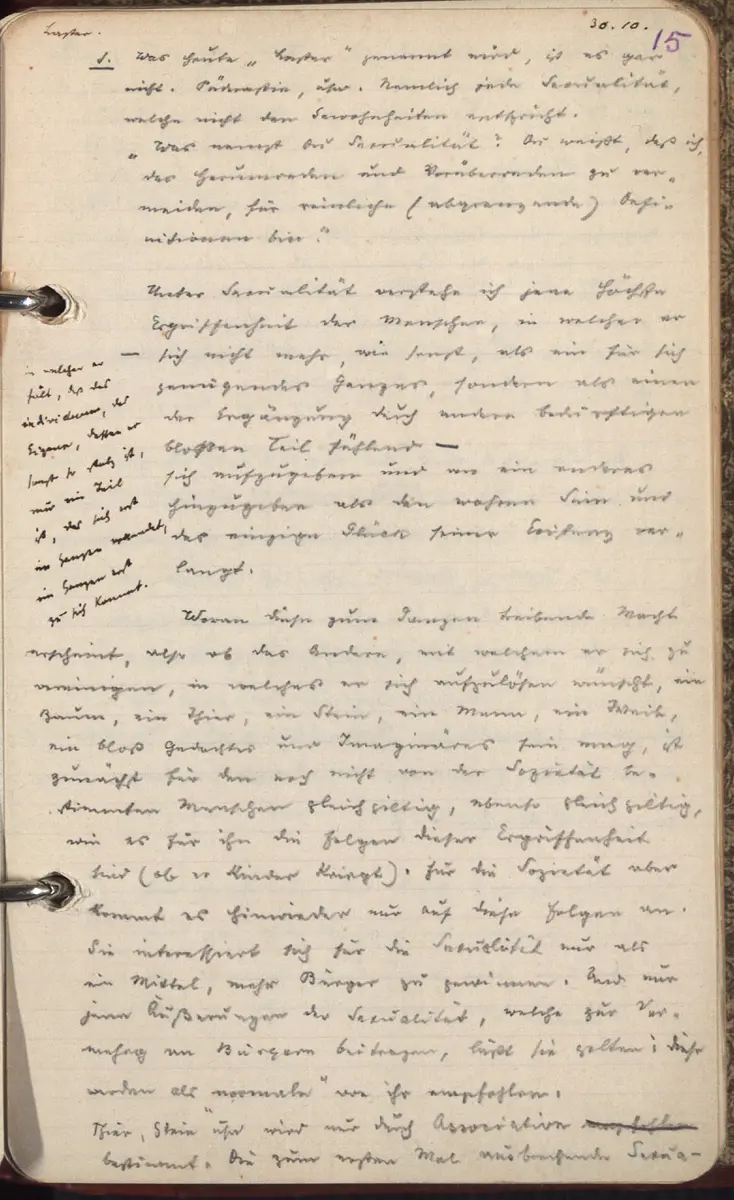 Laster.
30.10.
15
1. Was heute „Laster" genannt wird, ist es gar
nicht. Päderastie, usw. Nemlich jede Sexualität,
welche nicht den Gewohnheiten entspricht.
„Was nennst Du Sexualität? Du weißt, daß ich,
das Herumreden und Vorüberreden zu ver-
meiden, für reinliche (abgrenzende) Defi-
nitionen bin."
Unter Sexualität verstehe ich jene höchste
Ergriffenheit der Menschen, in welcher er
— sich nicht mehr, wie sonst, als ein für sich
genügendes Ganzes, sondern als einen
der Ergänzung durch andere bedürftigen
bloßen Teil fühlend —
sich aufzugeben und an ein anderes
hinzugeben als den wahren Sinn und
das einzige Glück seiner Existenz ver-
langt.
in welcher er
fühlt, daß das
individuum, das
Eigene, dessen er
sonst so stolz ist,
nur ein Teil
ist, das sich erst
im Ganzen vollendet,
im Ganzen erst
zu sich kommt.
Woran diese zum Ganzen treibende Macht
erscheint, also ob das Andere, mit welchem er sich zu
vereinigen, in welches er sich aufzulösen wünscht, ein
Baum, ein Thier, ein Stein, ein Mann, ein Weib,
ein bloß Gedachtes und Imaginäres sein mag, ist
zunächst für den noch nicht von der Sozietät be-
stimmten Menschen gleichgiltig, ebenso gleichgiltig,
wie es für ihn die Folgen dieser Ergriffenheit
sind (ob er Kinder kriegt). Für die Sozietät aber
kommt es hinwieder nur auf diese Folgen an.
Sie interessiert sich für die Sexualität nur als
ein Mittel, mehr Bürger zu gewinnen. Und nur
jene Äußerungen der Sexualität, welche zur Ver-
mehrg an Bürgern beitragen, läßt sie gelten; diese
werden als „normale" von ihr empfohlen.
Thier, Stein usw wird nur durch Association empfohlen
bestimmt. Die zum ersten Mal ausbrechende Sexua-